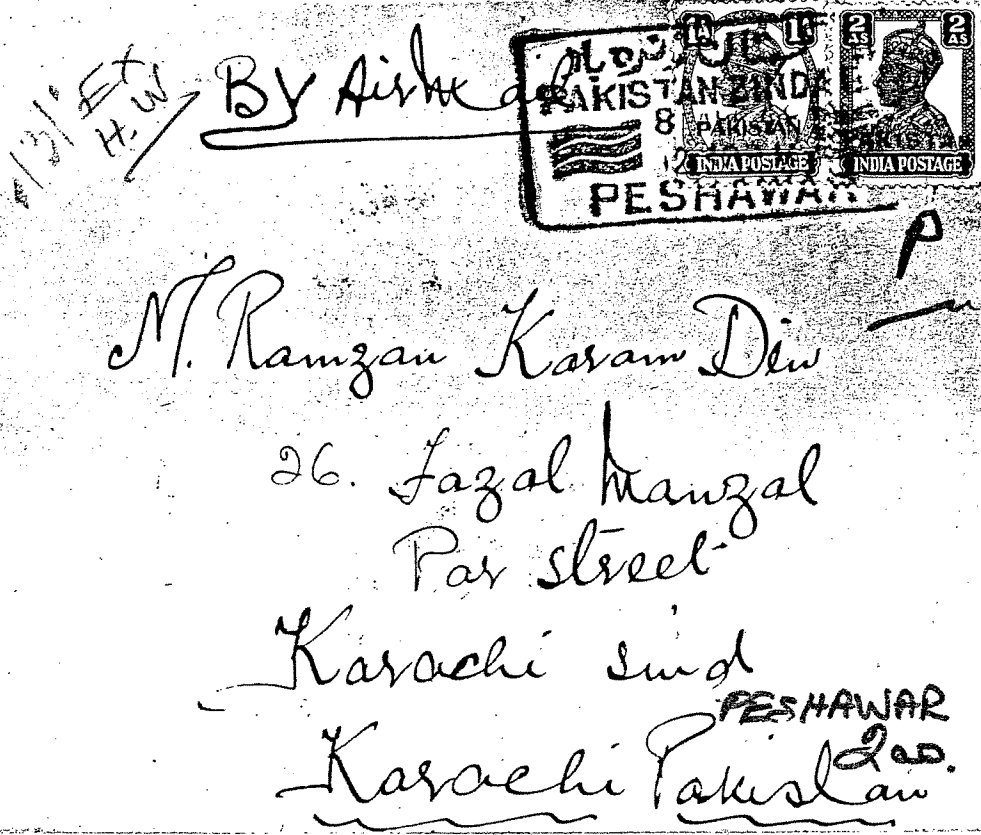 1/3/. Ext
H.W
By Air Mail
PAKISTAN ZINDA
8
PESHAWAR
1A 1A
PAKISTAN
INDIA POSTAGE
2 AS 2 AS
PAKISTAN
INDIA POSTAGE
P
M. Ramzan Karam Din
26. Fazal Manzal
Par street
Karachi sind
PESHAWAR
2as.
Karachi Pakistan